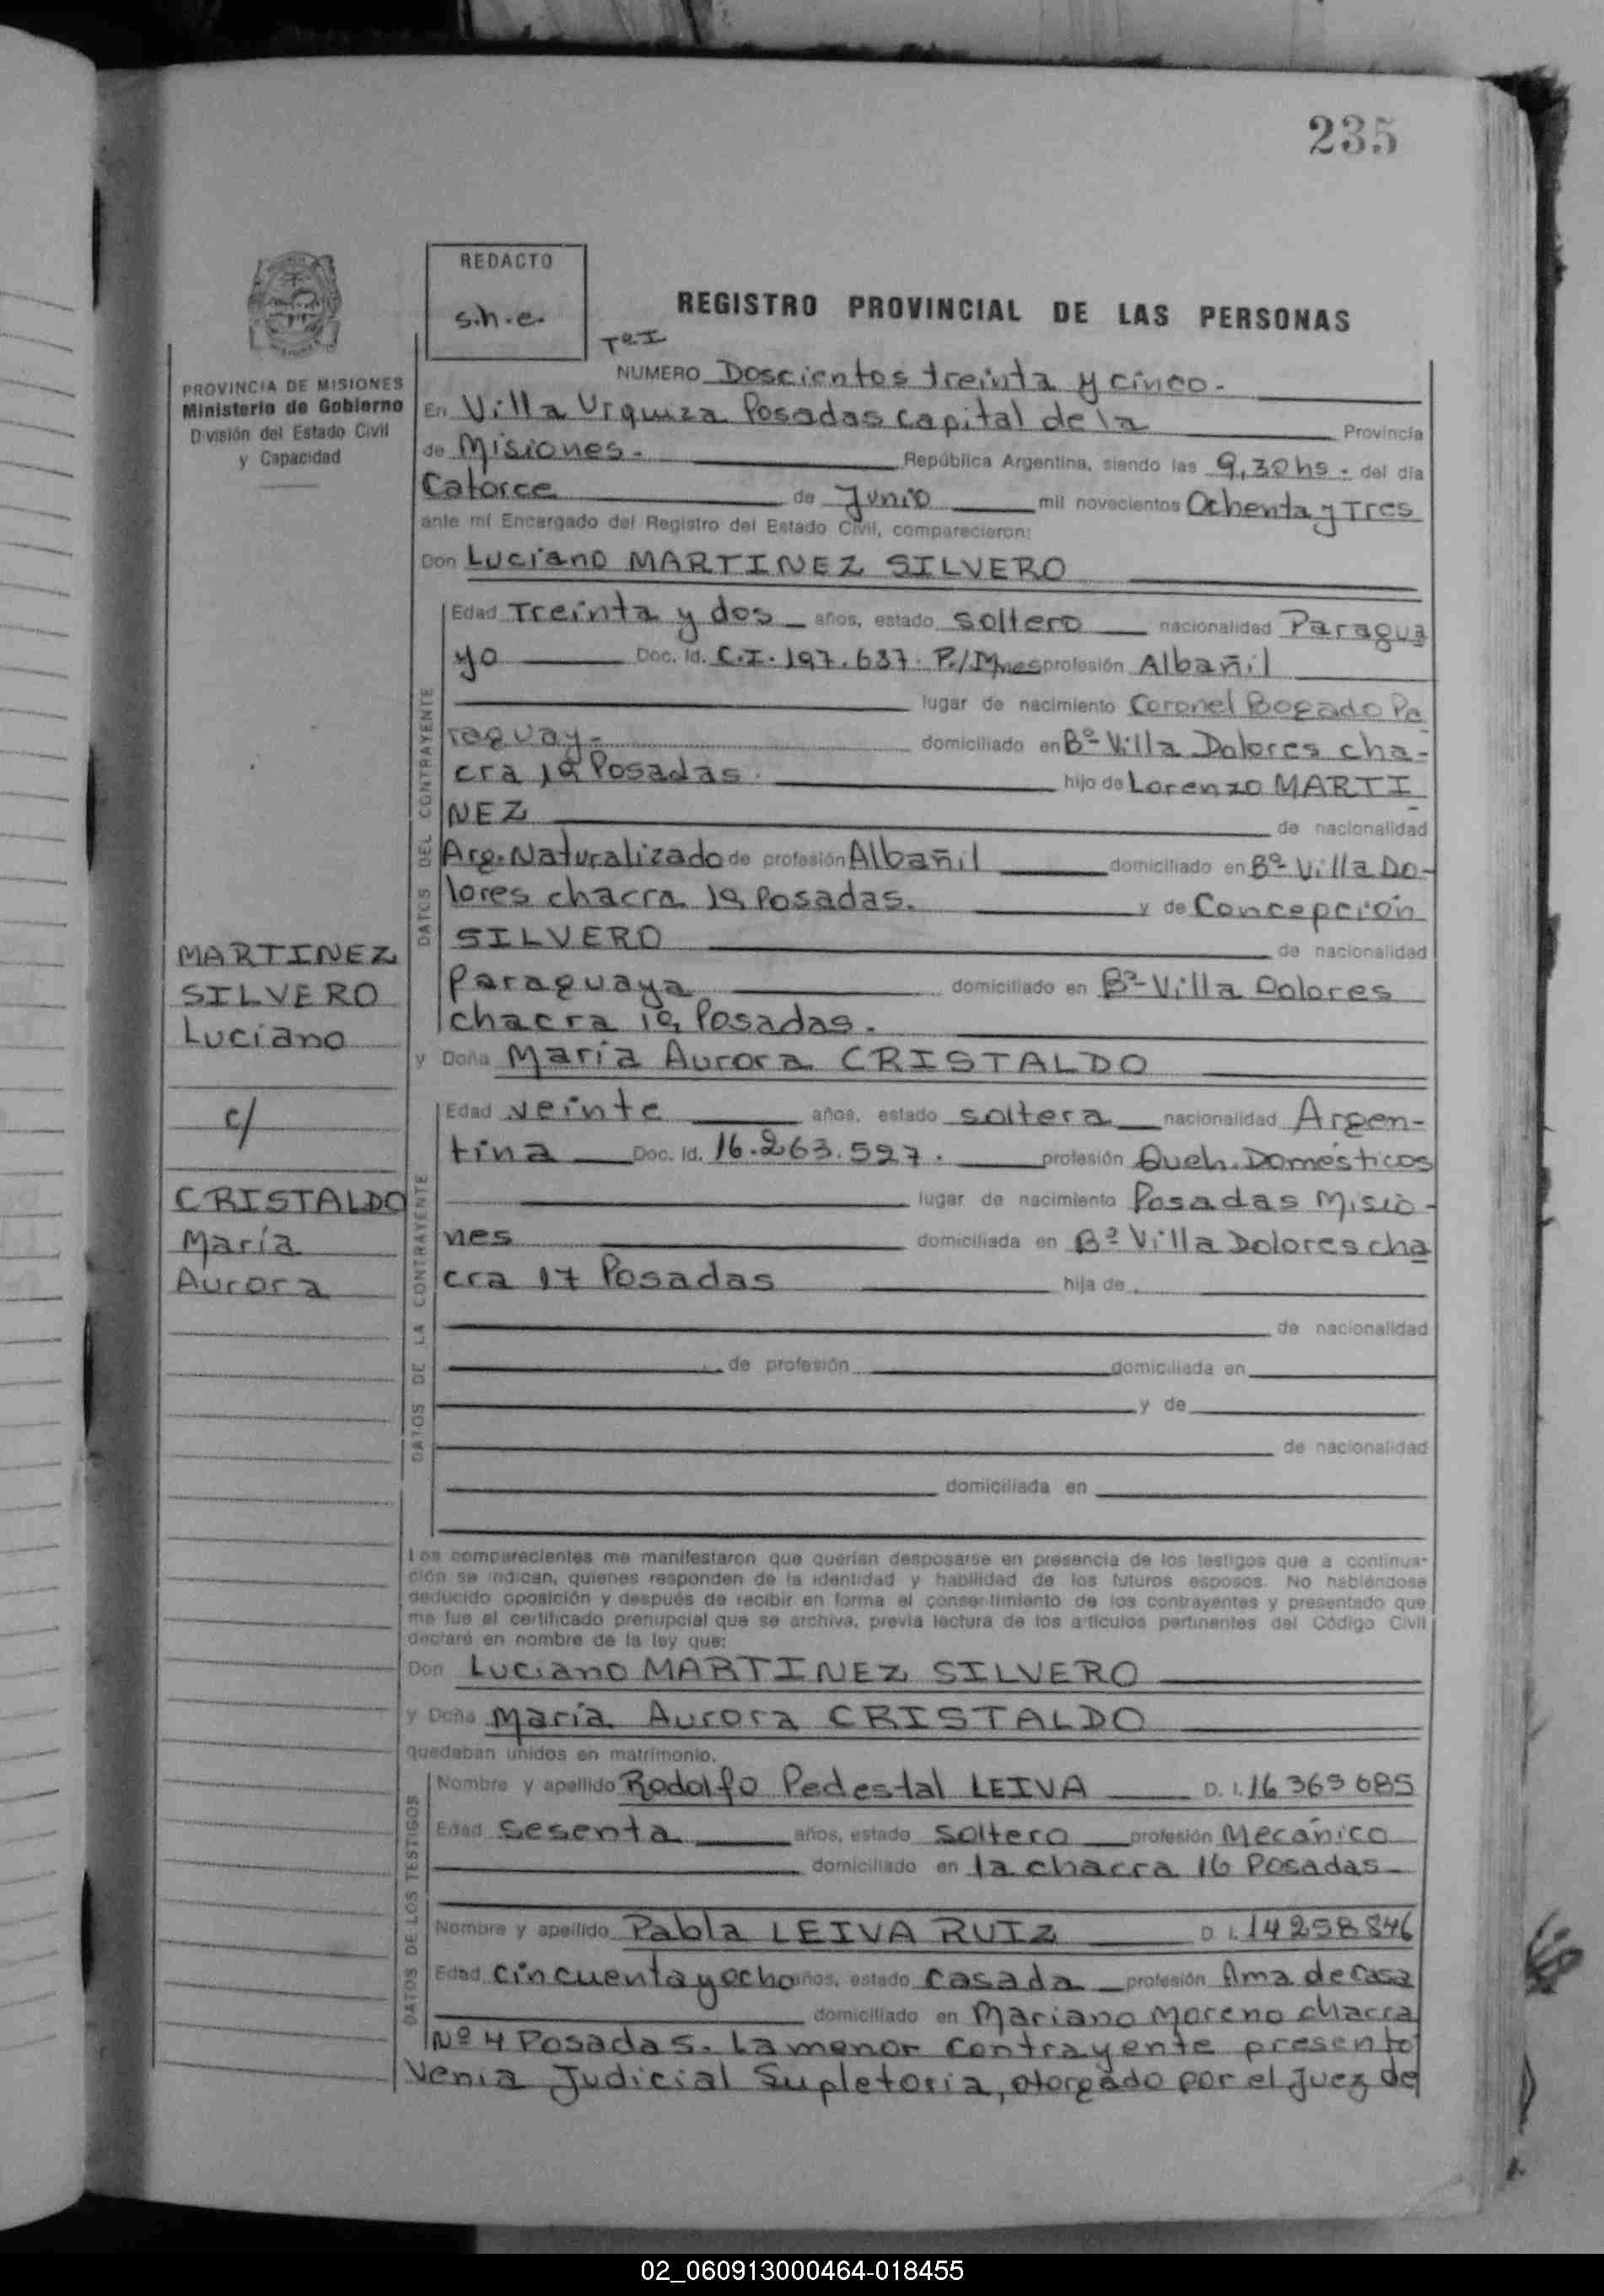 235
REDACTO
s.h.e.
REGISTRO PROVINCIAL DE LAS PERSONAS
PROVINCIA DE MISIONES
Ministerio de Gobierno
División del Estado Civil
y Capacidad
NUMERO Doscientos treinta y cinco.
En Villa Urquiza Posadas capital de la Provincia
de Misiones. República Argentina, siendo las 9,30 hs. del día
Catorce de Junio mil novecientos Ochenta y Tres
ante mí Encargado del Registro del Estado Civil, comparecieron:
Don Luciano MARTINEZ SILVERO
DATOS DEL CONTRAYENTE
Edad Treinta y dos años, estado soltero nacionalidad Paragua
yo Doc. Id. C.I. 197.637. P./Mnes profesión Albañil
lugar de nacimiento Coronel Bogado Pa
raguay- domiciliado en Bº Villa Dolores cha-
cra 19 Posadas. hijo de Lorenzo MARTI
NEZ de nacionalidad
Arg. Naturalizado de profesión Albañil domiciliado en Bº Villa Do-
lores chacra 19 Posadas. y de Concepción
SILVERO de nacionalidad
Paraguaya domiciliado en Bº Villa Dolores
chacra 19 Posadas.
y Doña María Aurora CRISTALDO
MARTINEZ
SILVERO
Luciano
c/
CRISTALDO
María
Aurora
DATOS DE LA CONTRAYENTE
Edad veinte años, estado soltera nacionalidad Argen-
tina Doc. Id. 16.263.527. profesión Queh. Domésticos
lugar de nacimiento Posadas Misio-
nes domiciliada en Bº Villa Dolores cha
cra 17 Posadas hija de
de nacionalidad
de profesión domiciliada en
y de
de nacionalidad
domiciliada en
Los comparecientes me manifestaron que querían desposarse en presencia de los testigos que a continua-
ción se indican, quienes responden de la identidad y habilidad de los futuros esposos. No habiéndose
deducido oposición y después de recibir en forma el consentimiento de los contrayentes y presentado que
me fue el certificado prenupcial que se archiva, previa lectura de los artículos pertinentes del Código Civil
declaré en nombre de la ley que:
Don Luciano MARTINEZ SILVERO
y Doña María Aurora CRISTALDO
quedaban unidos en matrimonio.
DATOS DE LOS TESTIGOS
Nombre y apellido Rodolfo Pedestal LEIVA D. I. 16 365 685
Edad sesenta años, estado soltero profesión Mecánico
domiciliado en la chacra 16 Posadas
Nombre y apellido Pabla LEIVA RUIZ D. I. 14 258 846
Edad cincuenta y ocho años, estado casada profesión Ama de casa
domiciliado en Mariano Moreno chacra
Nº 4 Posadas. La menor contrayente presentó
Venia Judicial Supletoria, otorgado por el Juez de
02_060913000464-018455